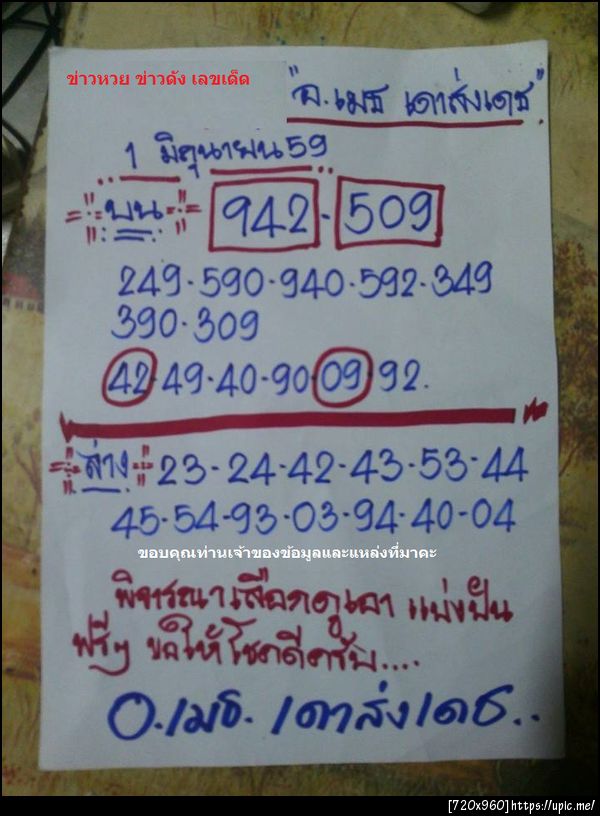 ข่าวหวย ข่าวดัง เลขเด็ด
"อ.เมธ เดาส่งเดช"
1 มิถุนายน 59
=:บน:= 942 - 509
249-590-940-592-349
390-309
42-49-40-90-09-92.
=:ล่าง:= 23-24-42-43-53-44
45-54-93-03-94-40-04
ขอบคุณท่านเจ้าของข้อมูลและแหล่งที่มาคะ
พิจารณาเลือกดูเอา แบ่งปัน
ฟรีๆ ขอให้โชคดีครับ....
อ.เมธ. เดาส่งเดช..
[720x960] https://upic.me/